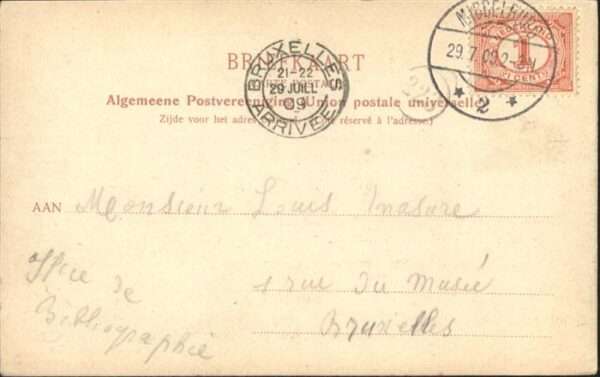 BRIEFKAART
CARTE POSTALE
Algemeene Postvereeniging Union postale universelle
Zijde voor het adres réservé à l'adresse.)
AAN Monsieur Louis Masure
Office de
Bibliographie
1 rue du Musée
Bruxelles
BRUXELLES
21-22
29 JUILL
09
ARRIVÉE
MIDDELBURG
29.7.09 2-3N
2
1
CENT